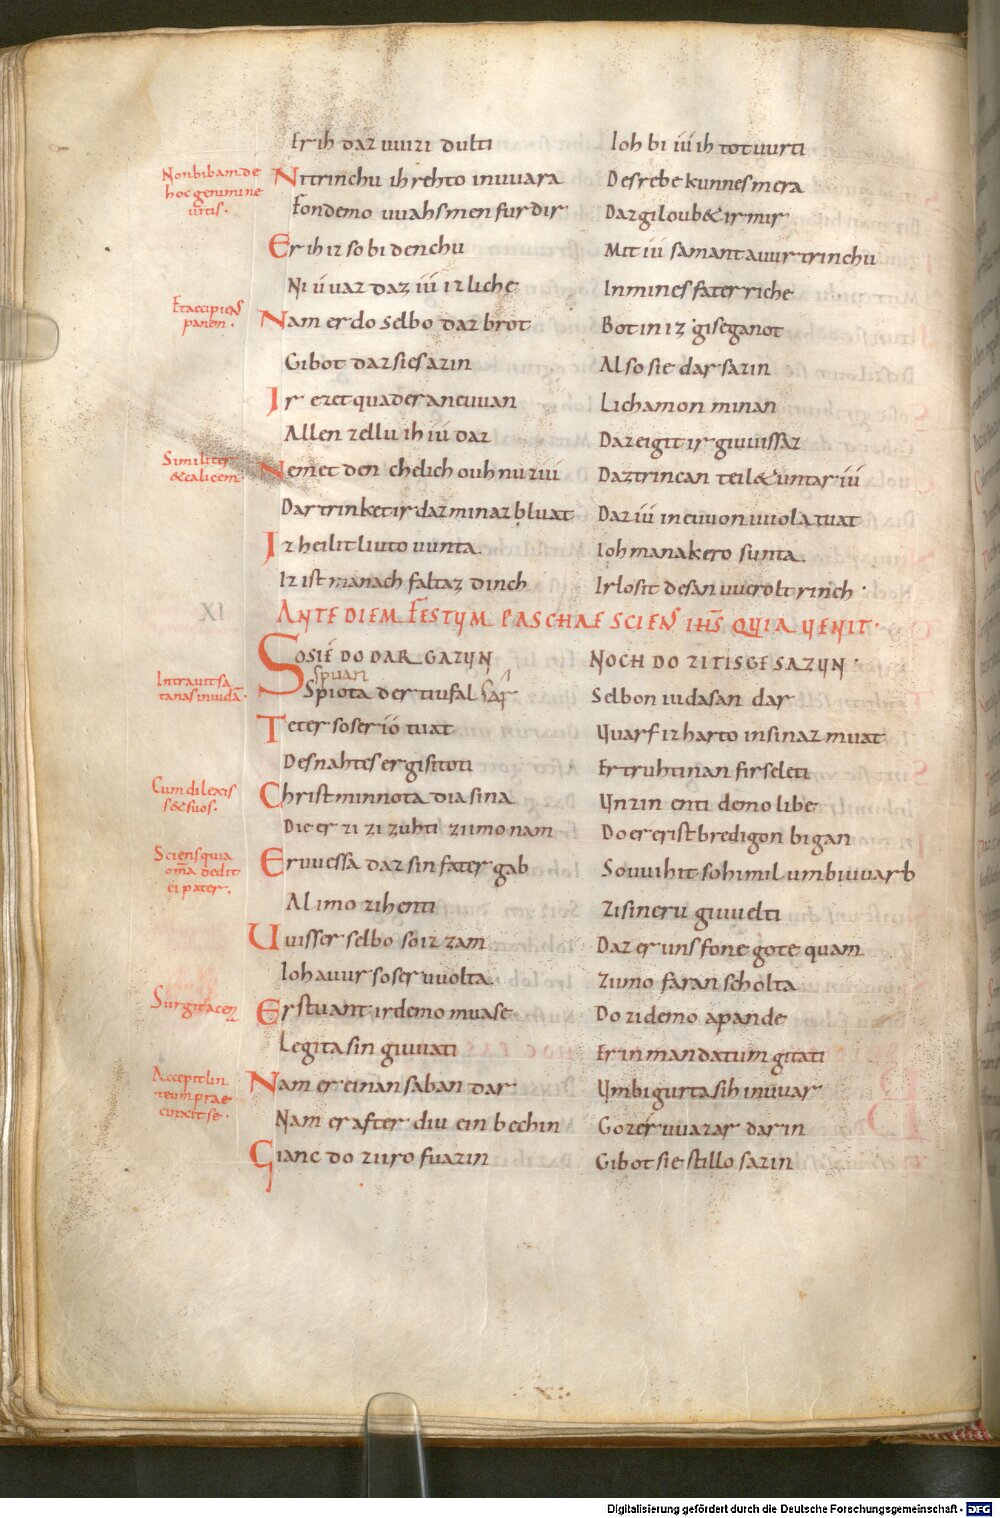 Er ih daz uuizi dulti Ioh bi iú ih tot uurti
Non bibam de
hoc genimine
uitis.
Ni trinchu ih rehto in uuara Des rebekunnes mera
Fon demo uuahsmen furdir Daz giloub& ir mir
Er ih iz so bidenchu Mit iú samant auur trinchu
Ni ú uaz daz iú iz liche In mines fater riche
Et accipiens
panem.
Nam er do selbo daz brot Bot in iz giseganot
Gibot daz sies azin Also sie dar sazin
Ir ezet quad er ana uuan Lichamon minan
Allen zellu ih iú daz Daz eigit ir giuuissaz
Similiter
& calicem.
Nemet den chelich ouh nu zi iú Daz trincan teil& untar iú
Dar trinket ir daz minaz bluat Daz iú in euuon uuola tuat
Iz heilit liuto uunta Ioh managero sunta
Iz ist manach faltaz dinch Irlosit desan uuerolt rinch.
XI. ANTE DIEM FESTUM PASCHAE SCIENS IHS QUIA UENIT.
SO SIE DO DAR GAZUN NOCH DO ZI TISGE SAZUN.
spuari
Intrauit sa
tanas in iudā.
Spiota der tiufal sar Selbon iudasan dar
Teter so ser io tuat Uuarf iz harto in sinaz muat
Des nahtes er gisitoti Er truhtinan firseleti
Cum dilexis
s& suos.
Christ minnota dia sina Unzin enti demo libe
Die er zi zi zuhti zi imo nam Do er erist bredigon bigan
Sciens quia
omīa dedit
ei pater.
Er uuessa daz sin fater gab So uuihit so himil umbiuuarb
Al imo zi henti Zi sineru giuuelti
Uuisser selbo so iz zam Daz er uns fone gote quam
Ioh auur so ser uuolta Zi imo faran scholta
Surgit a cena
Er stuant ir demo muase Do zi demo apande
Legita sin giuuati Er in mandatum gitati
Accepit lin
teum prae
cinxit se.
Nam er einan saban dar Umbigurta sih in uuar
Nam er after diu ein bechin Goz er uuazar dar in
Gianc do zi iro fuazin Gibot sie stillo sazin
Digitalisierung gefördert durch die Deutsche Forschungsgemeinschaft - DFG